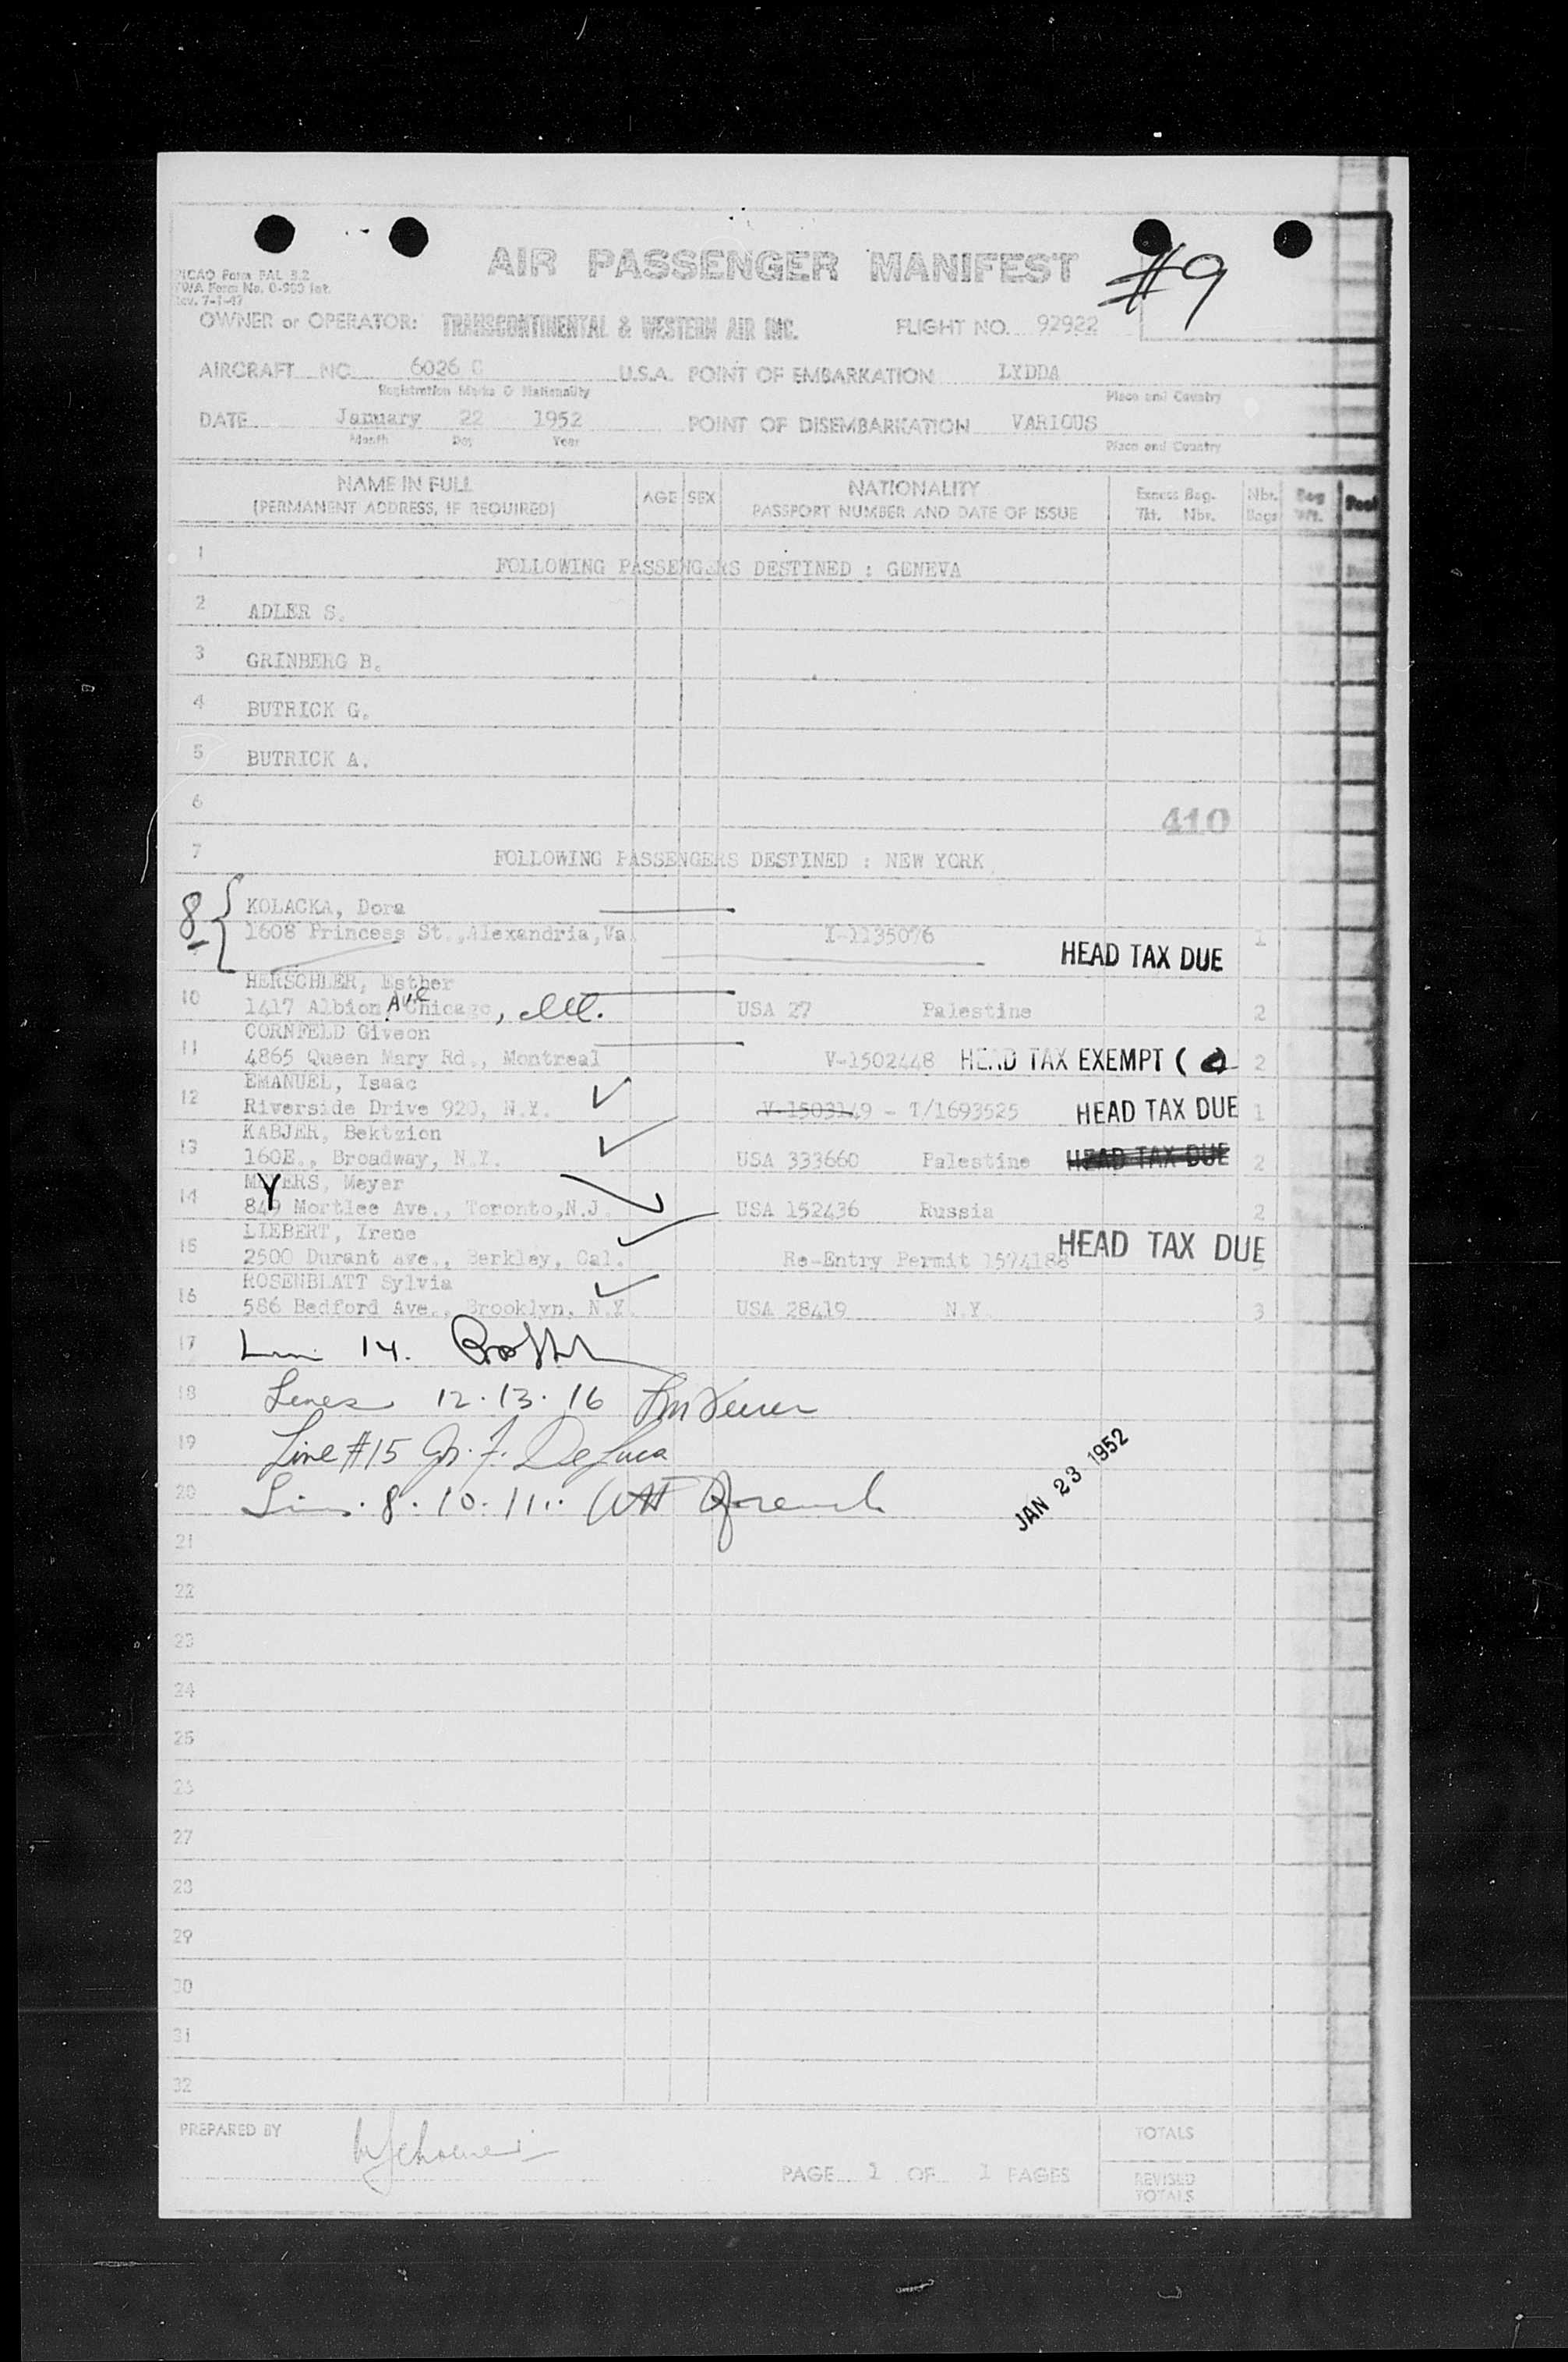 AIR PASSENGER MANIFEST
#9
ICAO Form FAL 3.2
TWA Form No. O-980 Int.
Rev. 7-1-47
OWNER or OPERATOR: TRANSCONTINENTAL & WESTERN AIR INC. FLIGHT NO. 92922
AIRCRAFT NC 6026 C U.S.A. POINT OF EMBARKATION LYDDA
Registration Marks & Nationality Place and Country
DATE January 22 1952 POINT OF DISEMBARKATION VARIOUS
Month Day Year Place and Country
NAME IN FULL AGE SEX NATIONALITY Excess Bag. Nbr. Bag
(PERMANENT ADDRESS, IF REQUIRED) PASSPORT NUMBER AND DATE OF ISSUE Tkt. Nbr. Bags Wt.
1 FOLLOWING PASSENGERS DESTINED : GENEVA
2 ADLER S.
3 GRINBERG B.
4 BUTRICK G.
5 BUTRICK A.
6 410
7 FOLLOWING PASSENGERS DESTINED : NEW YORK
8 KOLACKA, Dora
1608 Princess St., Alexandria, Va. I-1135076 HEAD TAX DUE 1
HERSCHLER, Esther
10 1417 Albion Ave Chicago, Ill. USA 27 Palestine 2
CORNFELD Giveon
11 4865 Queen Mary Rd., Montreal V-1502448 HEAD TAX EXEMPT ( 2
EMANUEL, Isaac
12 Riverside Drive 920, N.Y. V-1503149 - T/1693525 HEAD TAX DUE 1
KABJER, Bektzion
13 160E., Broadway, N.Y. USA 333660 Palestine HEAD TAX DUE 2
MYERS, Meyer
14 849 Mortlee Ave., Toronto, N.J. USA 152436 Russia 2
LIEBERT, Irene
15 2500 Durant Ave., Berkley, Cal. Re-Entry Permit 1574188 HEAD TAX DUE
ROSENBLATT Sylvia
16 586 Bedford Ave., Brooklyn, N.Y. USA 28419 N.Y. 3
17 Line 14.
18 Lines 12.13.16
19 Line #15 DeLuca
20 Lines 8.10.11
JAN 23 1952
21
22
23
24
25
26
27
28
29
30
31
32
PREPARED BY TOTALS
PAGE 1 OF 1 PAGES REVISED
TOTALS